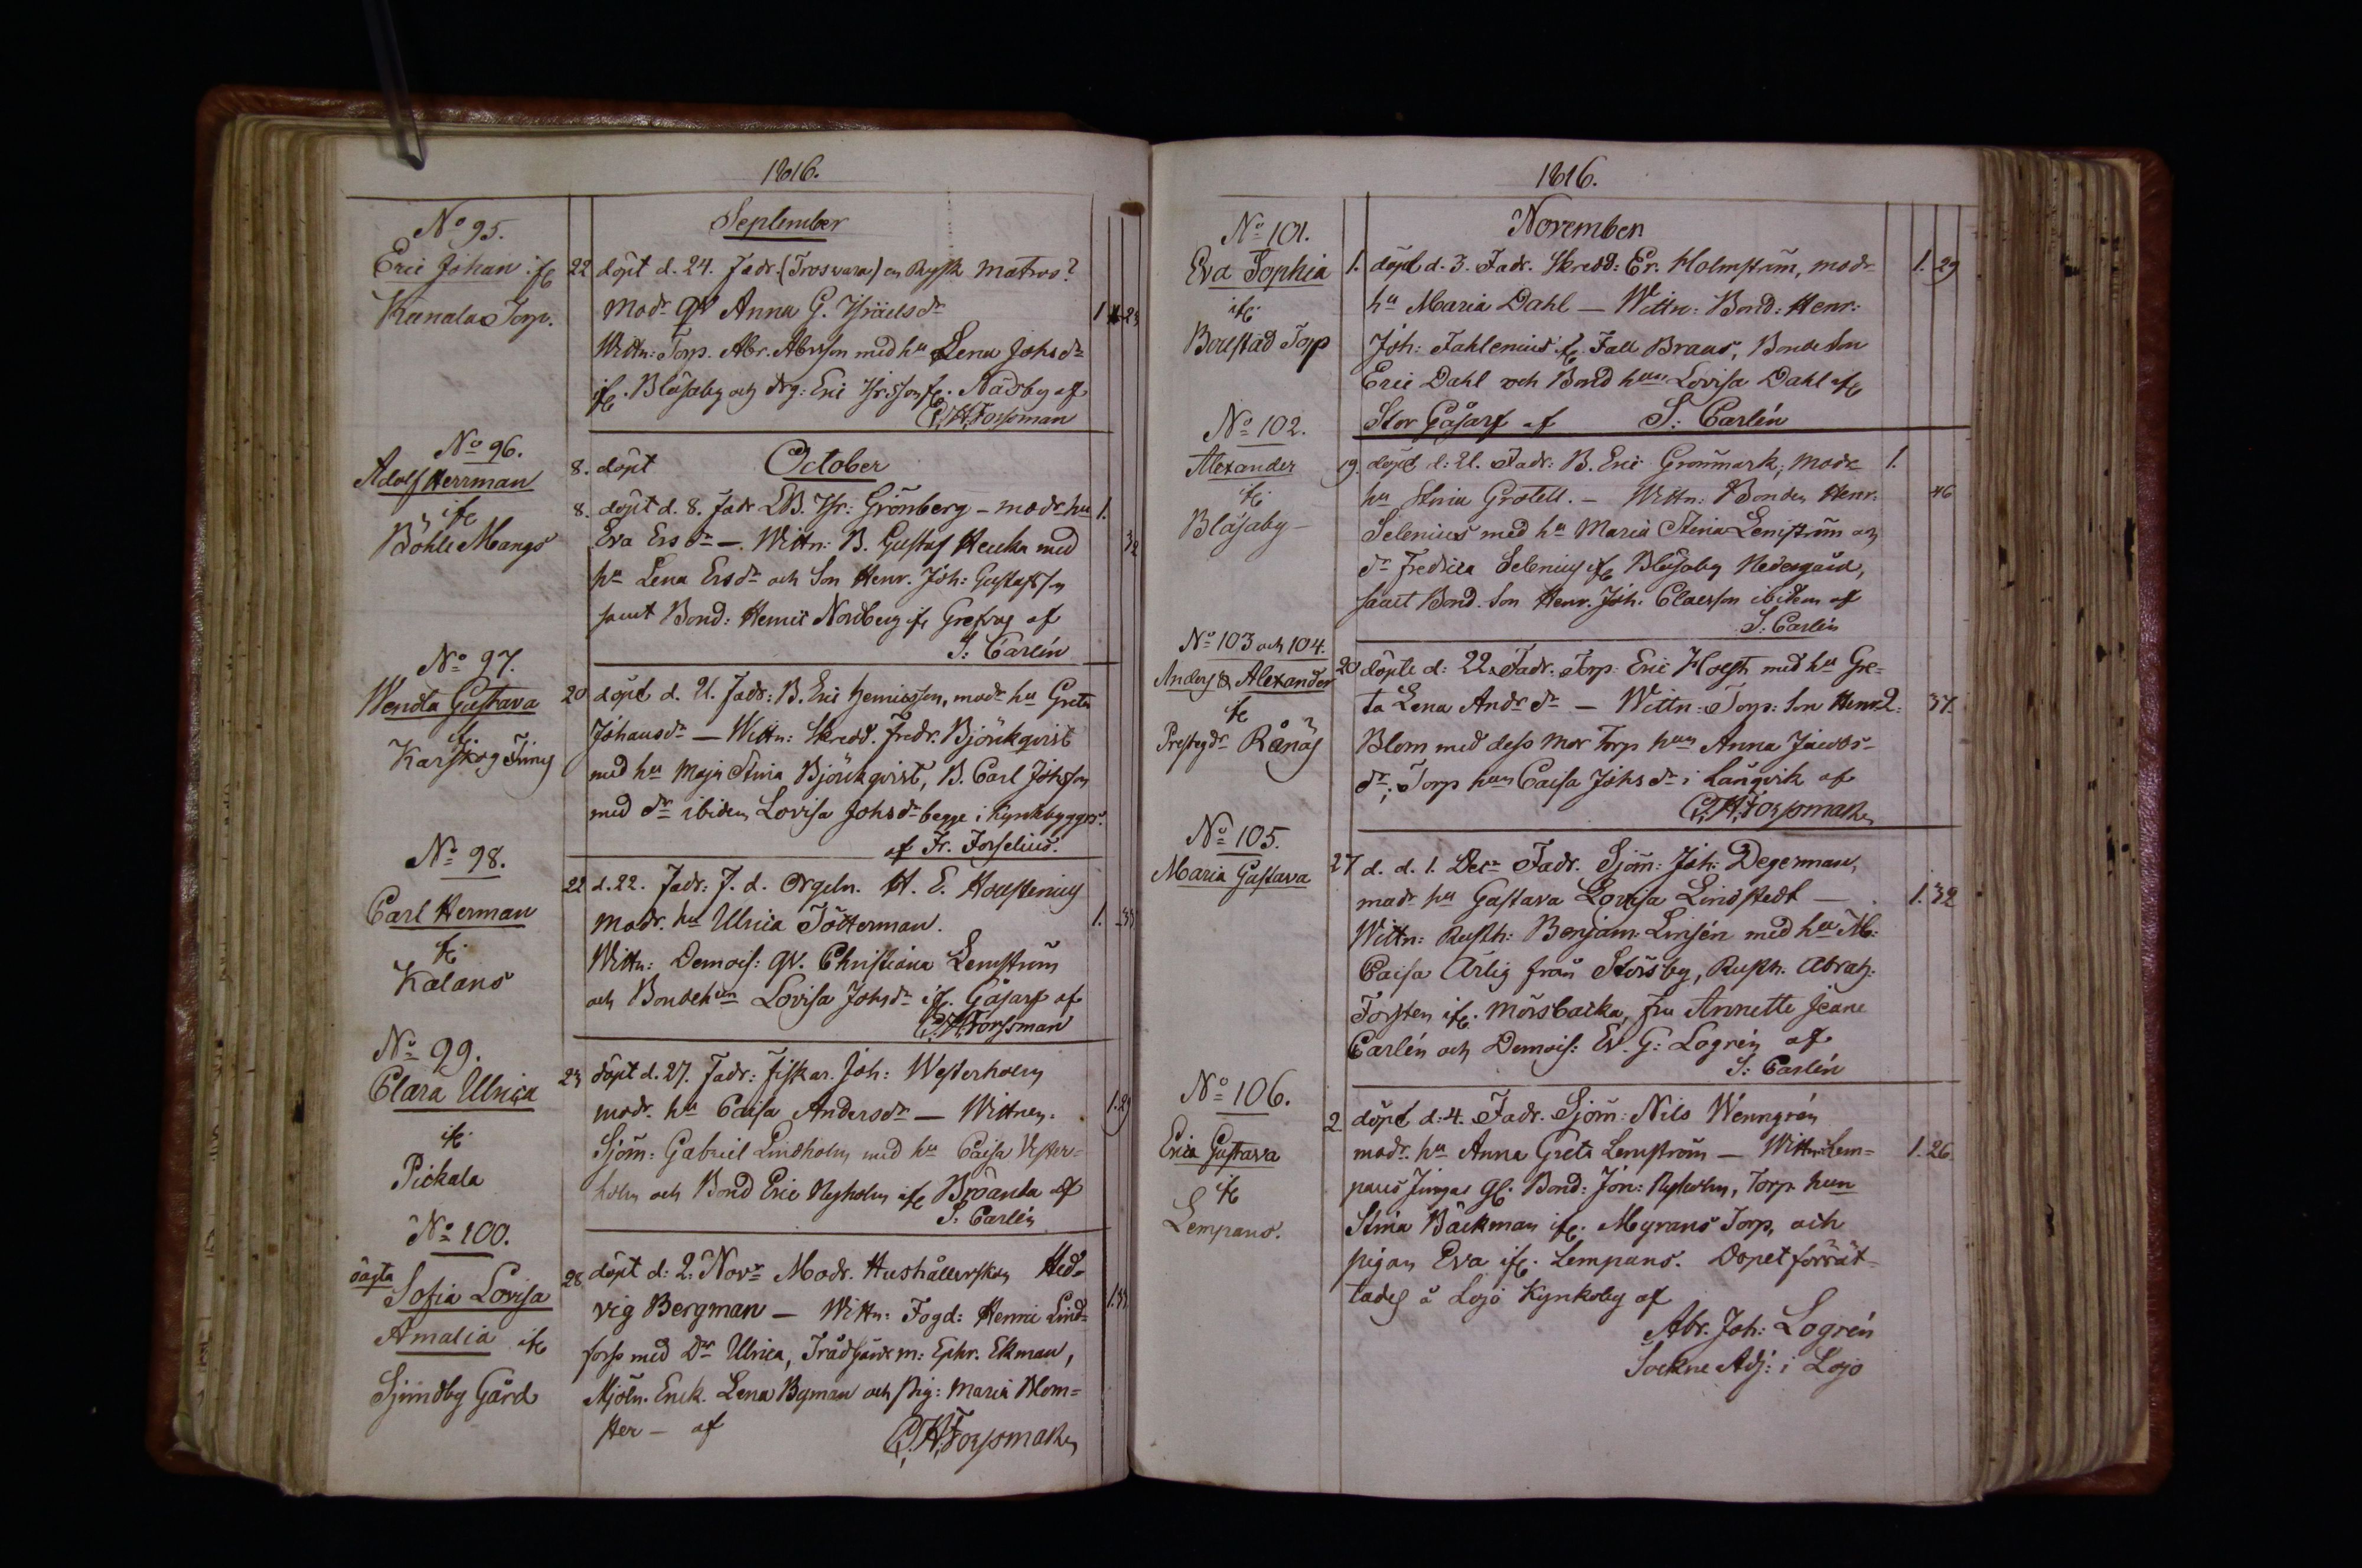 1816.
September
No 95.
Eric Johan if
Kanala Torp.
22 döpt d. 24. Fadr. (Trosvaras) en Rysk Matros?
Modr qv Anna G. Isräelsdr
1 23
Wittn: Torp. Abr. Abrsson med hu Lena Johsdr
if. Blåsaby och drg: Eric if. Nääsby af
C.H. Forssman
October
No 96.
Adolf Herrman
if
Böhle Mangs
8. döpt
8. döpt d. 8. Fadr LB. Isr: Grönberg – modr hu 1.
Eva Ersdr –. Wittn: B. Gustaf Heuka med 32
hu Lena Ersdr och Son Henr. Joh: Gustafsson
samt Bond: Henric Nordberg if Grefvas af
S: Carlén
No 97.
Wendla Gustava
if.
Karskog Finng
20 döpt d. 21. Fadr: B. Eric Henricsson, modr hu Greta
Johansdr – Wittn: Skredd. Fredr. Björkqvist
med hu Maja Stina Björkqvist, B. Carl Johsson
med dr ibidem Lovisa Johsdr begge i Kyrkbygges.
af Fr. Forselius.
No 98.
Carl Herman
if
Kalans
22 d. 22. Fadr: F. d. Orgeln. H. E. Houstenius
modr. hu Ulrica Tötterman. 1. 33
Wittn: Demois: qv. Christiana Lemström
och Bondehun Lovisa Johsdr if. Gåsarf af
C.H. Forssman
No 99.
Clara Ulrica
if
Pickala
23 döpt d. 27. Fadr: Fiskar. Joh: Westerholm
modr. hu Caisa Andersdr – Wittnen. 1. 29
Sjöm: Gabriel Lindholm med hu Caisa Vester=
holm och Bond Eric Nyholm if Bröanda af
S: Carlén
No 100.
oägta
Sofia Lovisa
Amalia if
Sjundby Gård
28 döpt d: 2. Novr Modr. Hushållerskan Hed=
vig Bergman – Wittn: Fogd: Henric Lind= 1. 33
forss med Dr Ulrica, Trädgårdsm: Ephr. Ekman,
Mjöln. Enck. Lena Byman och Pig: Maria Blom=
ster – af
C.H. Forssman
1816.
November
No 101.
Eva Sophia
if.
Boustad Torp
1. döpt d. 3. Fadr. Skredd: Er. Holmström, modr 1. 29
hu Maria Dahl – Wittn: Bond: Henr:
Joh: Fahlenius if Fall Braas, Bonde Son
Eric Dahl och Bond hun Lovisa Dahl if
Stor Gåsarf af S: Carlén
No 102.
Alexander
if.
Blåsaby –
19. döpt d: 21. Fadr: B. Eric Grönmark; modr 1.
hu Stina Grotell. – Wittn: Bonden Henr. 46
Selenius med hu Maria Stina Lemström och
dr Fredrica Selenius if Blåsaby Nedergård,
samt Bond. Son Henr. Joh: Claesson ibidem af
S: Carlén
No 103 och 104.
Anders & Alexander
if
Prestegdr Rånäs
20 döpte d: 22. Fadr. Torp. Eric Högst med hu Gre=
ta Lena Andrdr – Wittn: Torp: Son Henr. 2. 37.
Blom med dess Mor Torp hun Anna Jacobs=
dr, Torp hun Caisa Johsdr i Långvik af
C.H. Forssman
No 105.
Maria Gustava
27 d. d. 1. Decr Fadr. Sjöm: Joh: Degerman,
modr hu Gustava Lovisa Lindstedt – 1. 32
Wittn: Rusth: Benjam: Linsén med hu M:
Caisa Ärlig från Störsby, Rusth. Abrah:
Forsten if. Mörsbacka, fru Annette Jeane
Carlén och Demois: Ev. G: Logrén af
S: Carlén
No 106.
Erica Gustava
if
Lempans.
2. döpt d: 4. Fadr. Sjöm: Nils Wenngrén
modr. hu Anna Greta Lemström – Wittn: Lem= 1. 26.
pans Jungar Gf. Bond: Jon: Nyholm, Torp. hun
Stina Bäckman if. Myrans Torp, och
pigan Eva if. Lempans. Dopet förrät=
tades å Lojo Kyrkoby af
Abr. Joh: Logrén
Sockne Adj: i Lojo